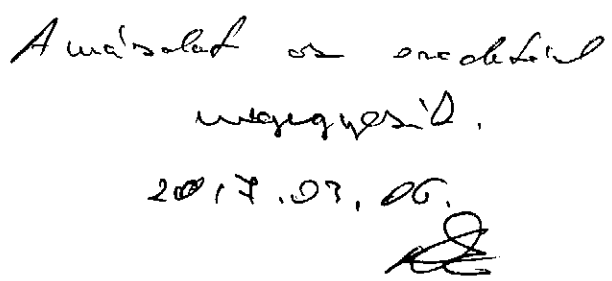 A másolat az eredetivel
megegyezik.
2017.03.06.